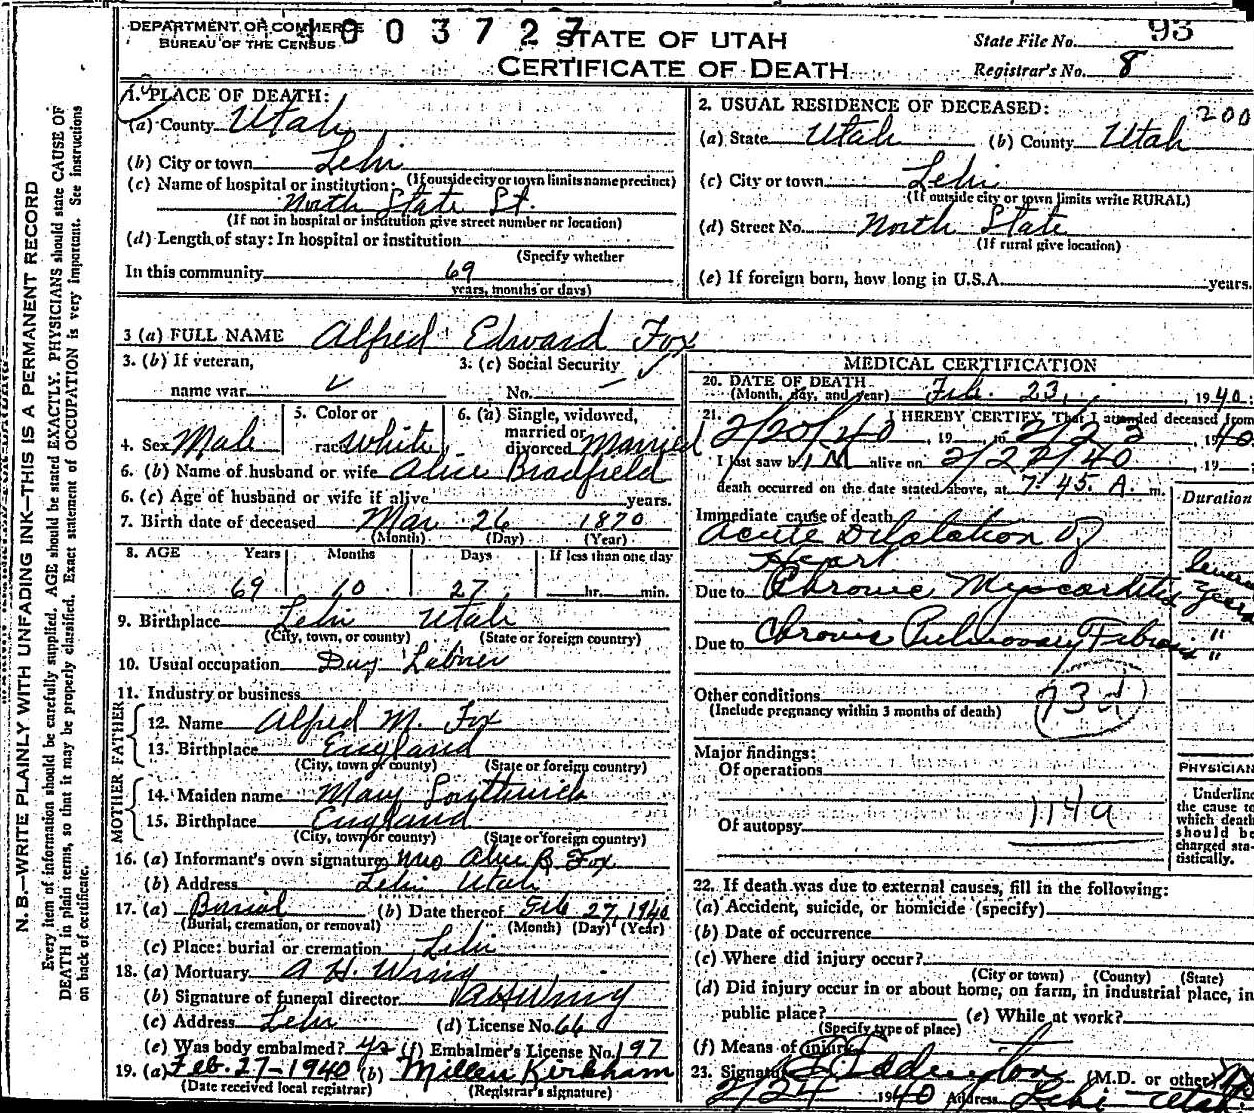 DEPARTMENT OF COMMERCE
BUREAU OF THE CENSUS
4003727
STATE OF UTAH
CERTIFICATE OF DEATH
State File No. 93
Registrar's No. 8
N. B.—WRITE PLAINLY WITH UNFADING INK—THIS IS A PERMANENT RECORD
Every item of information should be carefully supplied. AGE should be stated EXACTLY. PHYSICIANS should state CAUSE OF
DEATH in plain terms, so that it may be properly classified. Exact statement of OCCUPATION is very important. See instructions
on back of certificate.
1. PLACE OF DEATH:
(a) County Utah
(b) City or town Lehi
(If outside city or town limits name precinct)
(c) Name of hospital or institution:
North State St.
(If not in hospital or institution give street number or location)
(d) Length of stay: In hospital or institution
(Specify whether
In this community 69
years, months or days)
2. USUAL RESIDENCE OF DECEASED: 200
(a) State Utah (b) County Utah
(c) City or town Lehi
(If outside city or town limits write RURAL)
(d) Street No. North State
(If rural give location)
(e) If foreign born, how long in U.S.A. years.
3 (a) FULL NAME Alfred Edward Fox
3. (b) If veteran,
name war
3. (c) Social Security
No.
4. Sex Male
5. Color or
race White
6. (a) Single, widowed,
married or
divorced Married
6. (b) Name of husband or wife Alice Bradfield
6. (c) Age of husband or wife if alive years.
7. Birth date of deceased Mar 26 1870
(Month) (Day) (Year)
8. AGE Years Months Days If less than one day
69 10 27 hr. min.
9. Birthplace Lehi Utah
(City, town, or county) (State or foreign country)
10. Usual occupation Day Labner
11. Industry or business
FATHER
12. Name Alfred M. Fox
13. Birthplace England
(City, town or county) (State or foreign country)
MOTHER
14. Maiden name Mary Southwick
15. Birthplace England
(City, town or county) (State or foreign country)
16. (a) Informant's own signature Mrs Alice B. Fox
(b) Address Lehi Utah
17. (a) Burial (b) Date thereof Feb 27, 1940
(Burial, cremation, or removal) (Month) (Day) (Year)
(c) Place: burial or cremation Lehi
18. (a) Mortuary A H. Wing
(b) Signature of funeral director A H Wing
(c) Address Lehi (d) License No. 66
(e) Was body embalmed? yes (f) Embalmer's License No. 197
19. (a) Feb. 27-1940 (b) Millen Kirkham
(Date received local registrar) (Registrar's signature)
MEDICAL CERTIFICATION
20. DATE OF DEATH
(Month, day, and year) Feb. 23, 1940
21. I HEREBY CERTIFY, That I attended deceased from
2/20/40, 19 to 2/23, 1940
I last saw h IM alive on 2/22/40, 19
death occurred on the date stated above, at 7:45 A. m.
Duration
Immediate cause of death
Acute Dilatation of
Heart
Due to Chronic Myocarditis Several
years
Due to Chronic Pulmonary Fibrosis "
"
Other conditions 93d
(Include pregnancy within 3 months of death)
Major findings:
Of operations
114a
Of autopsy
PHYSICIAN
Underline
the cause to
which death
should be
charged sta-
tistically.
22. If death was due to external causes, fill in the following:
(a) Accident, suicide, or homicide (specify)
(b) Date of occurrence
(c) Where did injury occur?
(City or town) (County) (State)
(d) Did injury occur in or about home, on farm, in industrial place, in
public place? (e) While at work?
(Specify type of place)
(f) Means of injury
23. Signature Eddington (M.D. or other)
2/24 1940 Address Lehi Utah